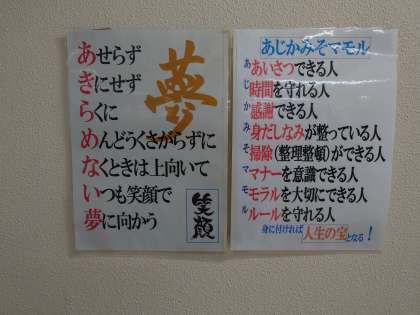 あせらず
きにせず
らくに
めんどうくさがらずに
なくときは上向いて
いつも笑顔で
夢に向かう
夢
笑顔
あじかみそマモル
あ あいさつできる人
じ 時間を守れる人
か 感謝できる人
み 身だしなみが整っている人
そ 掃除(整理整頓)ができる人
マ マナーを意識できる人
モ モラルを大切にできる人
ル ルールを守れる人
身に付ければ人生の宝となる!